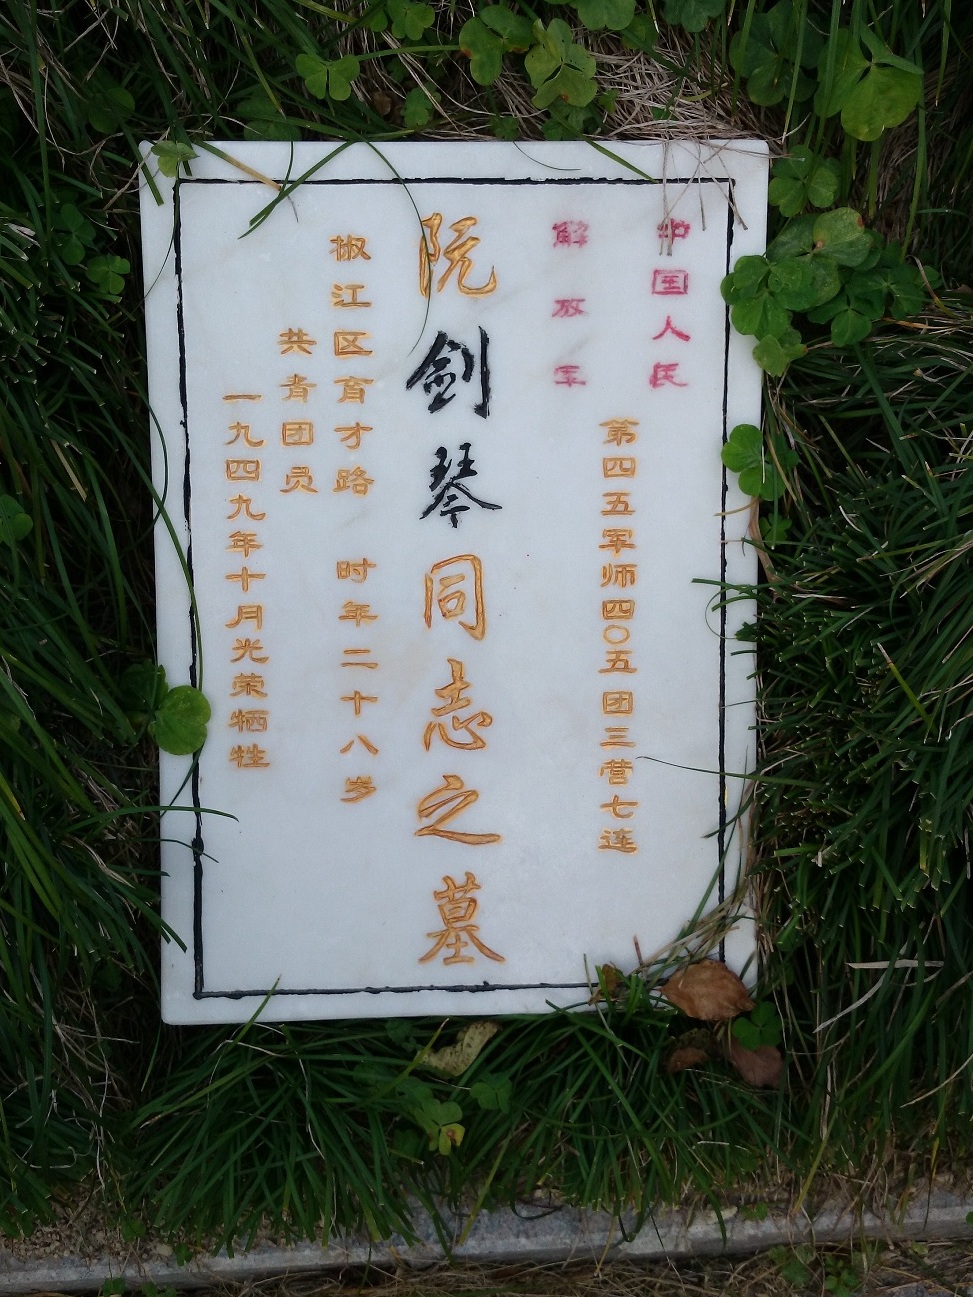 中国人民
解放军
第四五军师四〇五团三营七连
阮剑琴同志之墓
椒江区育才路 时年二十八岁
共青团员
一九四九年十月光荣牺牲